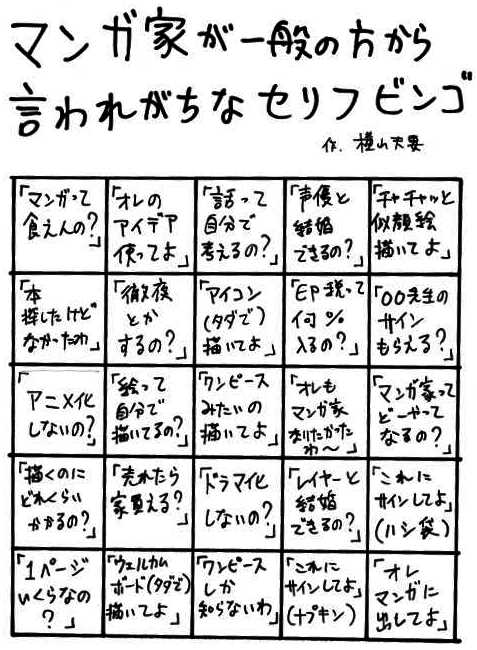 マンガ家が一般の方から
言われがちなセリフビンゴ
作. 横山夫妻
「マンガって
食えんの?」
「オレの
アイデア
使ってよ」
「話って
自分で
考えるの?」
「声優と
結婚
できるの?」
「チャチャッと
似顔絵
描いてよ」
「本
探したけど
なかったわ」
「徹夜
とか
するの?」
「アイコン
(タダで)
描いてよ」
「印税って
何%
入るの?」
「〇〇先生の
サイン
もらえる?」
「アニメ化
しないの?」
「絵って
自分で
描いてるの?」
「ワンピース
みたいの
描いてよ」
「オレも
マンガ家
なりたかった
わ〜」
「マンガ家って
どーやって
なるの?」
「描くのに
どれくらい
かかるの?」
「売れたら
家買える?」
「ドラマ化
しないの?」
「レイヤーと
結婚
できるの?」
「これに
サインしてよ」
(ハシ袋)
「1ページ
いくらなの
?」
「ウェルカム
ボード(タダで)
描いてよ」
「ワンピース
しか
知らないわ」
「これに
サインしてよ」
(ナプキン)
「オレ
マンガに
出してよ」